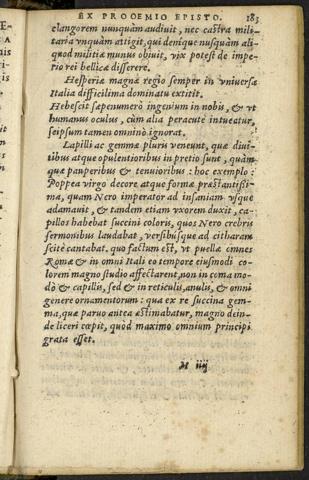 EX PROOEMIO EPISTO. 183
clangorem nunquàm audiuit, nec castra mili-
taria vnquàm attigit, qui deníque nusquàm ali-
quod militiæ munus obiuit, vix potest de impe-
rio rei bellicæ disserere.
Hesperiæ magnæ regio semper in vniuersa
Italia difficilima dominatu extitit.
Hebescit sæpenumerò ingenium in nobis, & vt
humanus oculus, cùm alia peracutè intueatur,
seipsum tamen omninò ignorat.
Lapilli ac gemmæ pluris veneunt, quæ diui-
tibus atque opulentioribus in pretio sunt, quàm
quæ pauperibus & tenuioribus : hoc exemplo :
Poppea virgo decore atque formæ præstantißi-
ma, quam Nero imperator ad insaniam vsque
adamauit, & tandem etiam vxorem duxit, ca-
pillos habebat succini coloris, quos Nero crebris
sermonibus laudabat, versibúsque ad citharam
scitè cantabat. quo factum est, vt puellæ omnes
Romæ & in omni Itali eo tempore eiusmodi co-
lorem magno studio affectarent, non in coma mo-
dò & capillis, sed & in reticulis, anulis, & omni
genere ornamentorum : qua ex re succina gem-
ma, quæ paruo antea æstimabatur, magno dein-
de liceri cœpit, quòd maximo omnium principi
grata esset.
M iiij